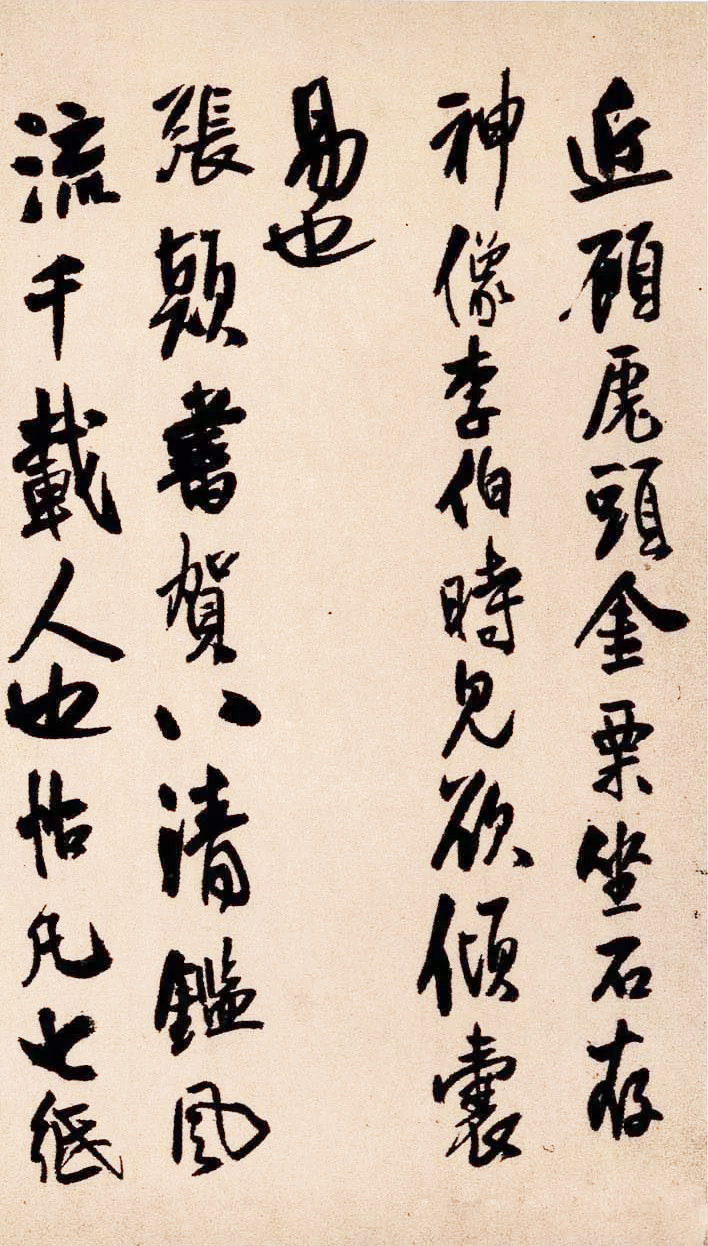 近顧虎頭金粟坐石存
神像李伯時見欲傾囊
易也
張顛書賀八清鑑風
流千載人也帖凡七紙